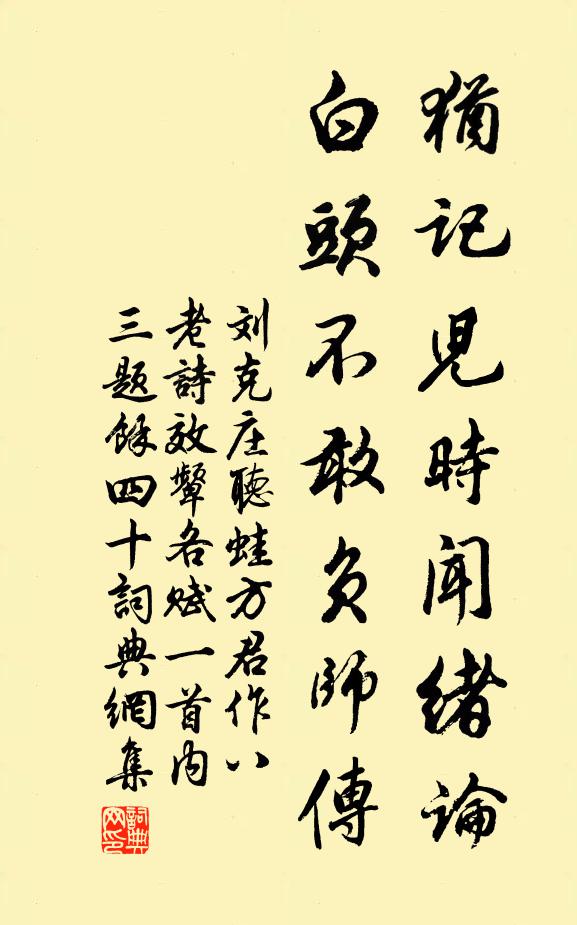 猶記兒時聞緒論
白頭不敢負師傳
刘克庄聽蛙方君作八
老詩效顰各赋一首内
三题餘四十詞典網集
詞典网印